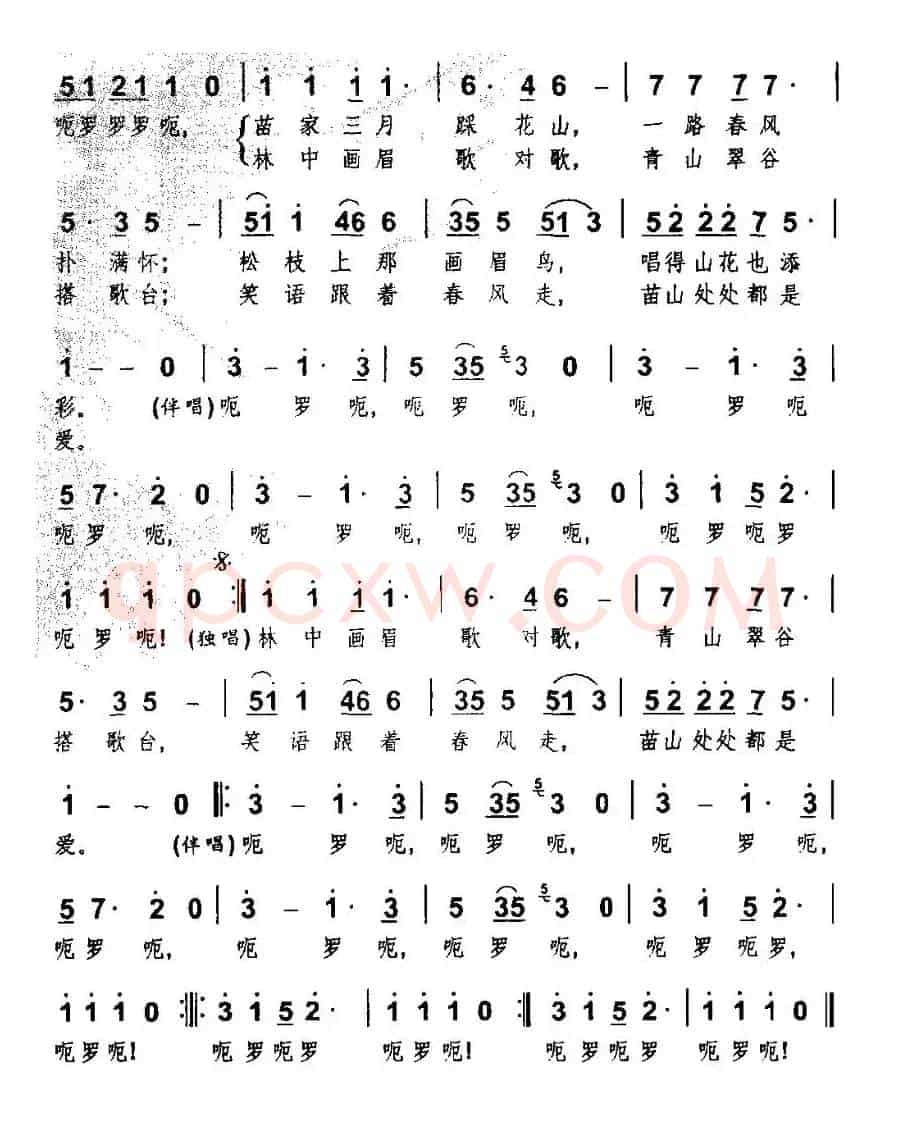 51 21 1 0 | 1 1 1 1· | 6· 4 6 – | 7 7 7 7· |
呃罗罗罗呃, 苗家三月 踩花山, 一路春风
林中画眉 歌对歌, 青山翠谷
5· 3 5 – | 51 1 46 6 | 35 5 51 3 | 52 22 7 5· |
扑满怀; 松枝上那 画眉鸟, 唱得山花也添
搭歌台; 笑语跟着 春风走, 苗山处处都是
1 – – 0 | 3 – 1· 3 | 5 35 5 3 0 | 3 – 1· 3 |
彩。 (伴唱)呃 罗呃,呃罗呃, 呃 罗呃
爱。
5 7· 2 0 | 3 – 1· 3 | 5 35 5 3 0 | 3 1 5 2· |
呃罗呃, 呃 罗呃, 呃罗呃, 呃罗呃罗
1 1 1 0 :‖ 1 1 1 1· | 6· 4 6 – | 7 7 7 7· |
呃罗呃! (独唱)林中画眉 歌对歌, 青山翠谷
qpcxw.COM
5· 3 5 – | 51 1 46 6 | 35 5 51 3 | 52 22 7 5· |
搭歌台, 笑语跟着 春风走, 苗山处处都是
1 – – 0 ‖: 3 – 1· 3 | 5 35 5 3 0 | 3 – 1· 3 |
爱。 (伴唱)呃 罗呃,呃罗呃, 呃 罗呃,
5 7· 2 0 | 3 – 1· 3 | 5 35 5 3 0 | 3 1 5 2· |
呃罗呃, 呃 罗呃, 呃罗呃, 呃罗呃罗,
1 1 1 0 :‖: 3 1 5 2· | 1 1 1 0 :‖ 3 1 5 2· | 1 1 1 0 ‖
呃罗呃! 呃罗呃罗 呃罗呃! 呃罗呃罗 呃罗呃!